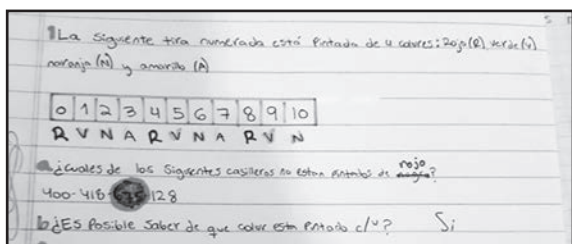 1 La siguiente tira numerada está Pintada de 4 colores: Rojo (R) verde (v)
naranja (N) y amarillo (A)
0 1 2 3 4 5 6 7 8 9 10
R V N A R V N A R V N
a ¿cuales de los siguientes casilleros no estan pintados de rojo?
400-418- 128
b ¿Es Posible saber de que color esta Pintado c/u? Si